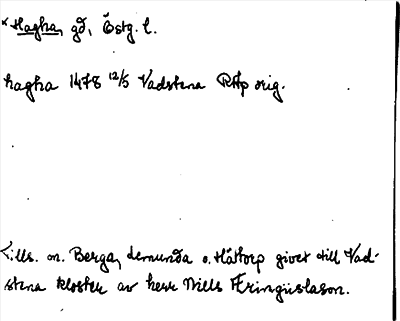 × Hagha, gd, Östg. l.
hagha 1478 12/5 Vadstena RAp orig.
Tills. m. Berga, demunda o. Håttorp givet till Vad-
stena kloster av herr Niells Æringislason.